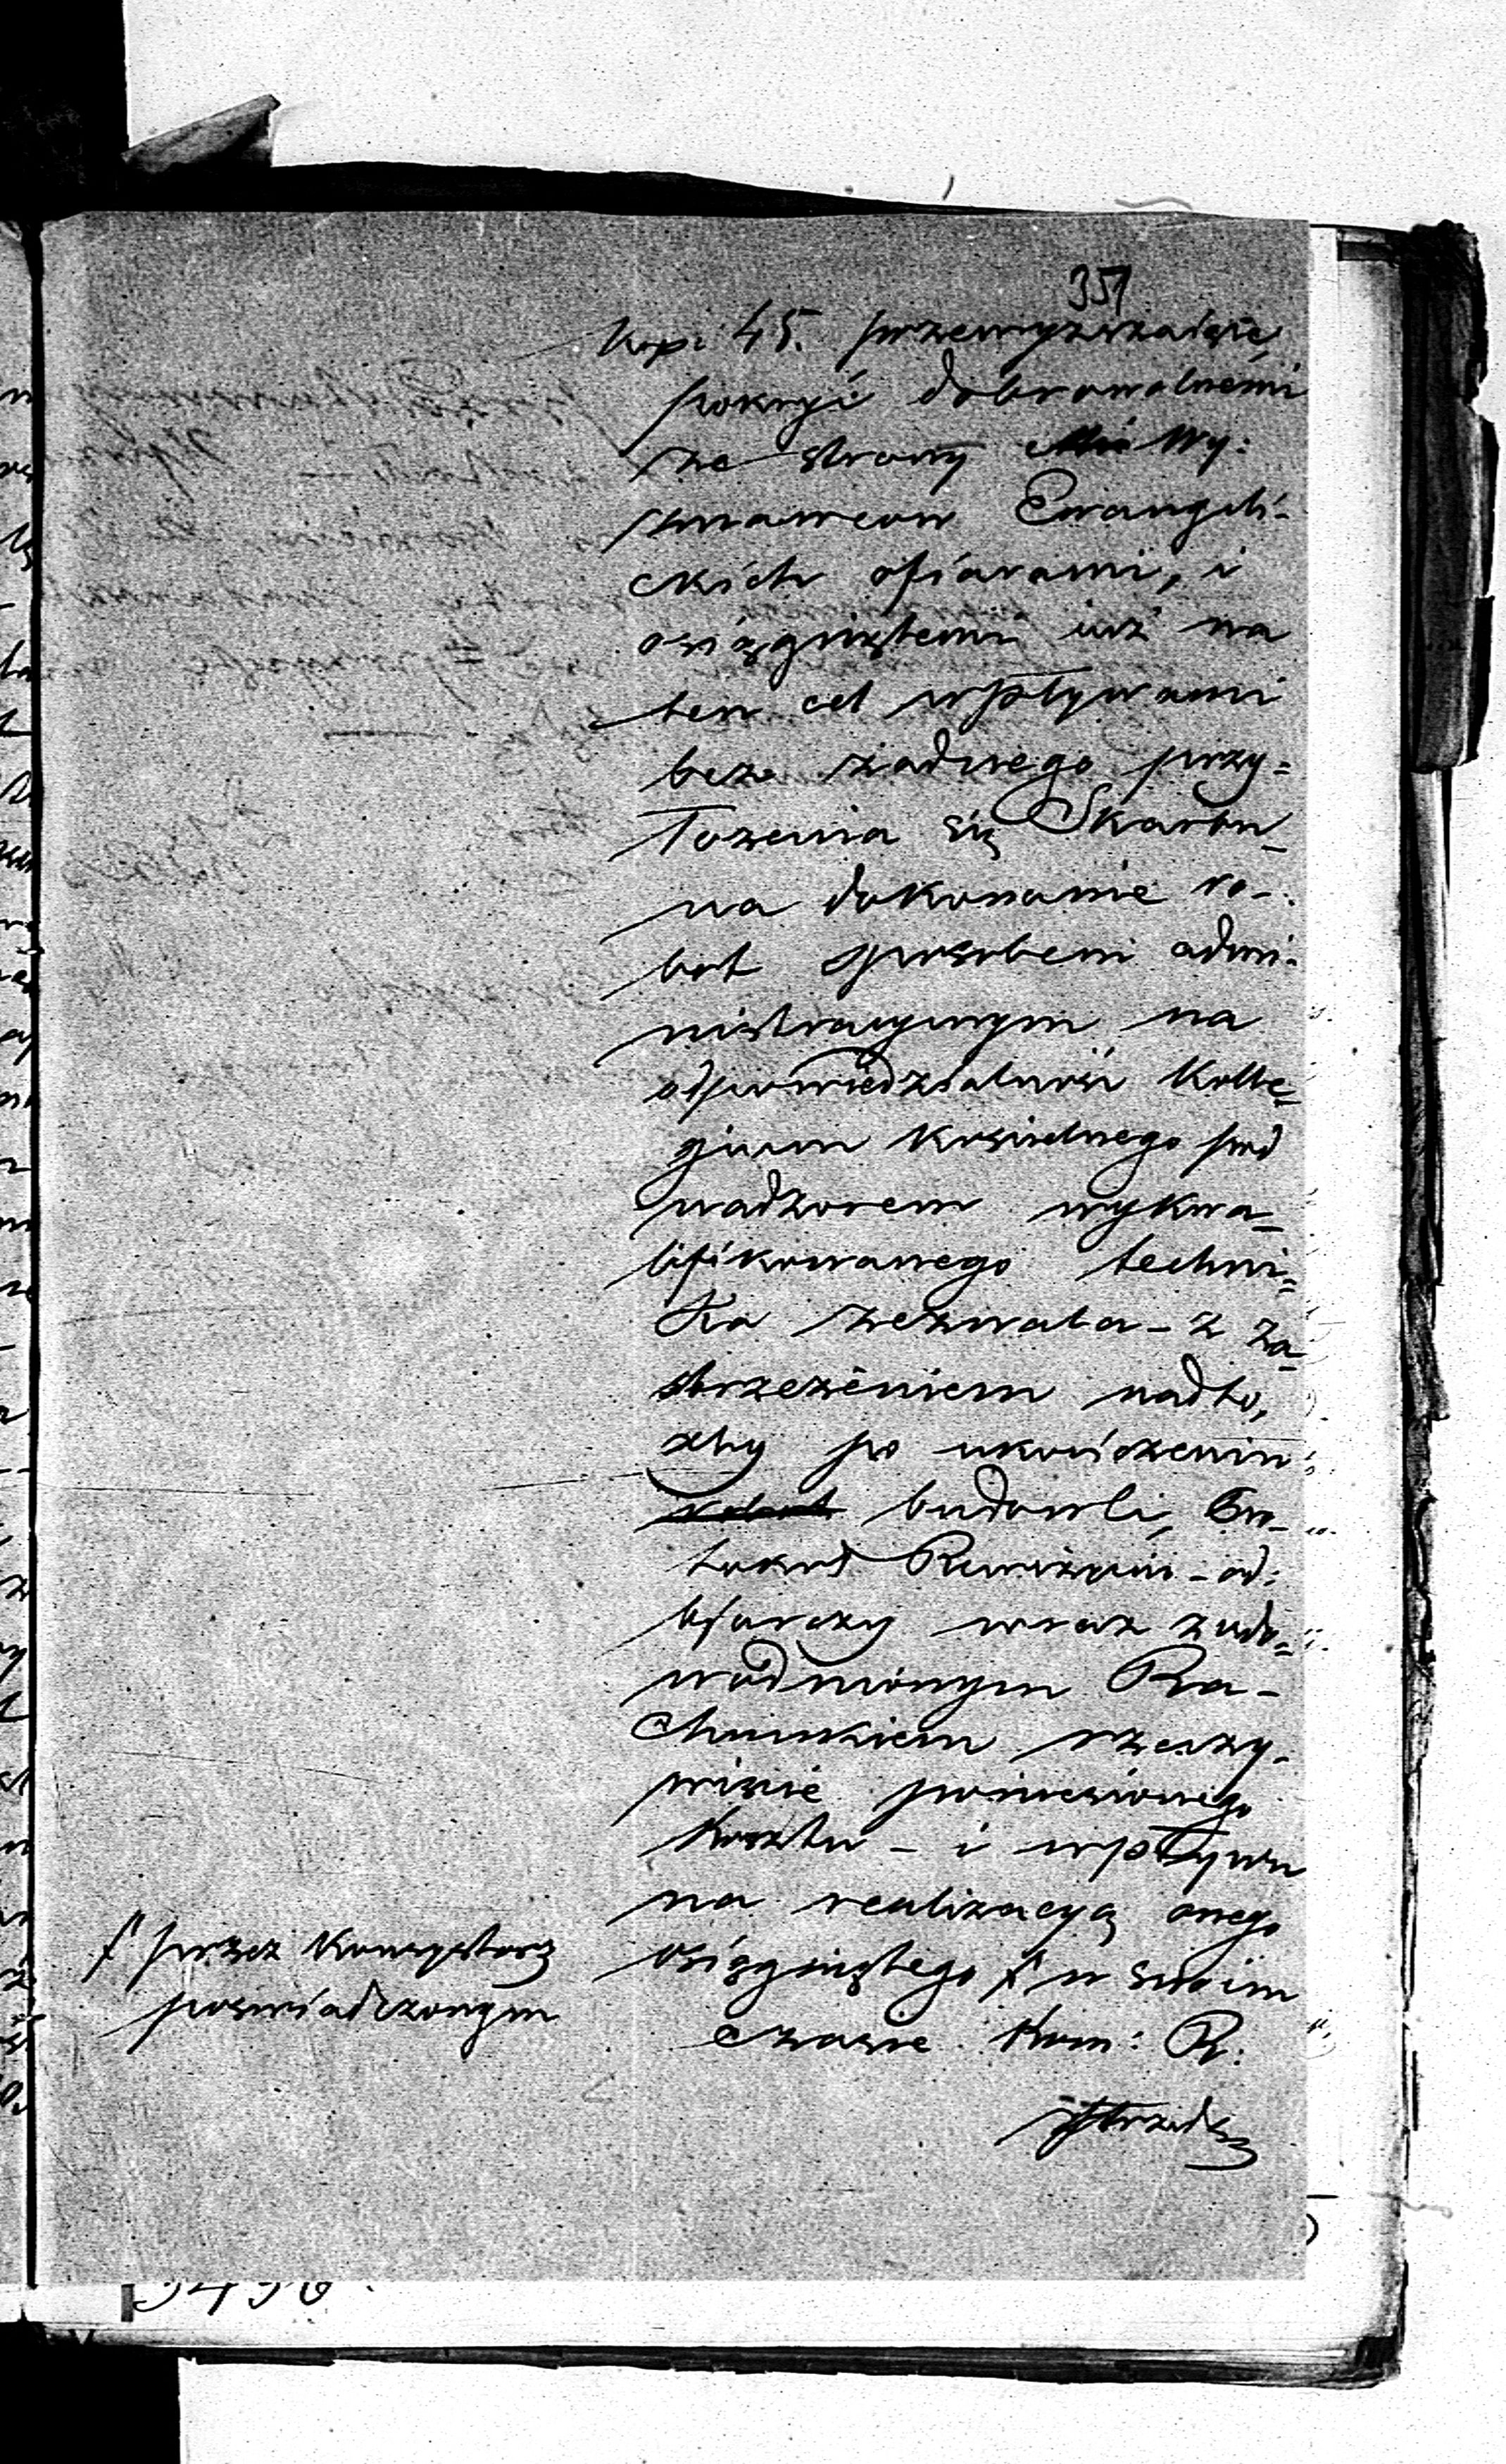 351
kop: 45. przewyższaiące
pokryć dobrowolnemi
ze strony Wy:
znawcow Ewangeli-
ckich ofiarami, i
osiągniętemi iuż na
ten cel wpływami
beze żadnego przy=
łożenia się Skarbu
na dokonanie ro-
bot sposobem admi-
nistracyinym na
odpowiedzialność Kolle=
gium kościelnego pod
nadzorem wykwa=
lifikowanego techni=
ka zezwala - z za=
strzeżeniem nadto,
aby po ukończeniu
budowli, Pro-
tokuł Rewizyino - od:
biorczy wraz z udo=
wodnionym Ra-
chunkiem rzeczy-
wiście poniesionego
Kosztu - i wpływu
na realizacyą onego
osiągniętego f w swoim
czasie Kom: R:
f przez Konsystorz
poswiadczonym